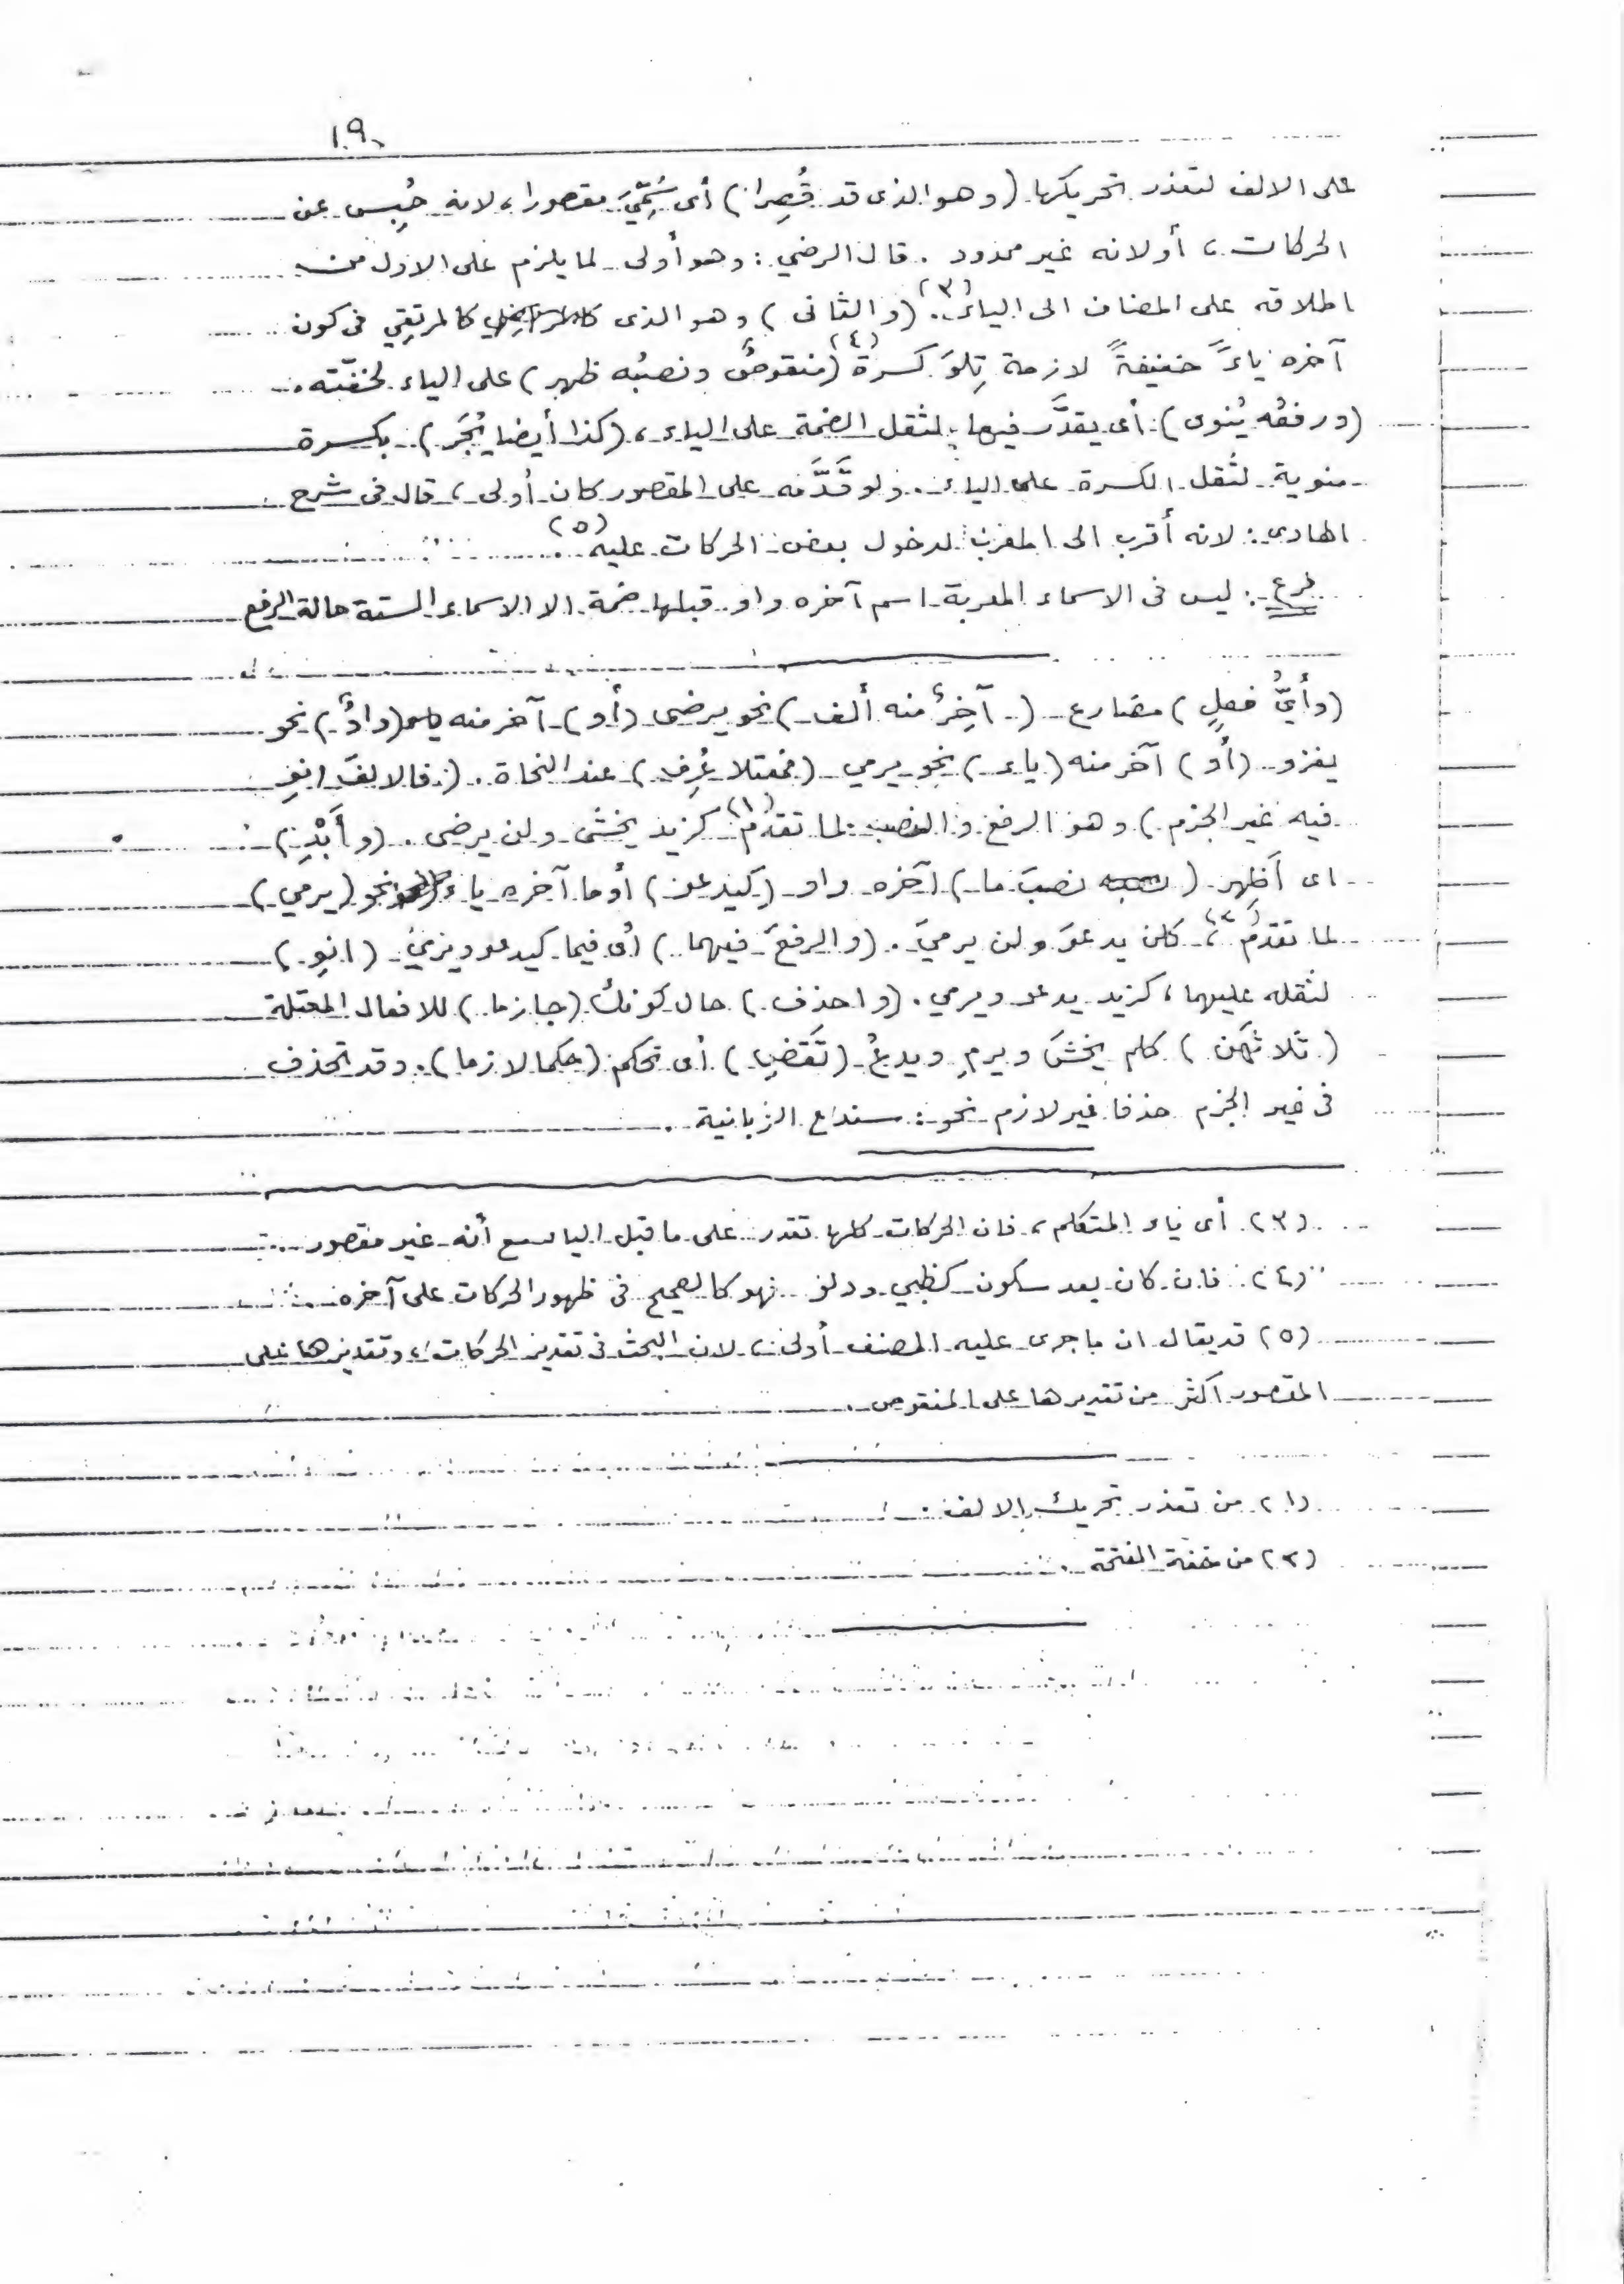 ١٩٠
على الالف لتعذر تحريكها (وهو الذى قد قُصِرا) أى سُمِّيَ مقصورا، لانه حُبِس عن
الحركات، أو لانه غير ممدود. قال الرضي: وهو أولى لما يلزم على الاول من
اطلاقه على المضاف الى الياء(٣). (والثانى) وهو الذى كالمرتقِي فى كون
آخره ياءً خفيفةً لازمة تِلوَ كسرة(٤) (منقوصٌ ونصبُه ظهر) على الياء لخفّته.
(ورفعُه يُنوى) أى يقدَّر فيها لثقل الضمة على الياء، (كذا أيضا يُجَر) بكسرة
منوية لثقل الكسرة على الياء. ولو قَدَّمَه على المقصور كان أولى، قال فى شرح
الهادى: لانه أقرب الى المعرب لدخول بعض الحركات عليه(٥).
فرع: ليس فى الاسماء المعربة اسم آخره واو قبلها ضمة الا الاسماء الستة حالة الرفع
(وأيُّ فعلٍ) مضارع (آخِرٌ منه ألف) نحو يرضى (أو) آخر منه (واوٌ) نحو
يغزو (أو) آخر منه (ياء) نحو يرمي (فمعتلا عُرِف) عند النحاة. (فالالفَ انوِ
فيه غير الجزم) وهو الرفع والنصب لما تقدم(١) كزيد يخشى ولن يرضى. (وأَبْدِ)
اى أظهِر (نصبَ ما) آخره واو (كيدعو) أو ما آخره ياء نحو (يرمي)
لما تقدم(٢)، كلن يدعوَ ولن يرميَ. (والرفعَ فيهما) أى فيما كيدعو ويرمي (انوِ)
لثقله عليهما، كزيد يدعو ويرمي. (واحذف) حال كونك (جازما) للافعال المعتلة
(ثلاثَهُن) كلم يخشَ ويرمِ ويدعُ (تَقضِ) أى تحكم (حكما لازما). وقد تحذف
فى غير الجزم حذفا غير لازم نحو: سندع الزبانية.
(٣) أى ياء المتكلم، فان الحركات كلها تقدر على ما قبل اليا مع أنه غير مقصور.
(٤) فان كان بعد سكون كظبي ودلو فهو كالصحيح فى ظهور الحركات على آخره.
(٥) قد يقال ان ما جرى عليه المصنف أولى، لان البحث فى تقدير الحركات، وتقديرها على
المقصور اكثر من تقديرها على المنقوص.
(١) من تعذر تحريك الالف.
(٢) من خفة الفتحة.